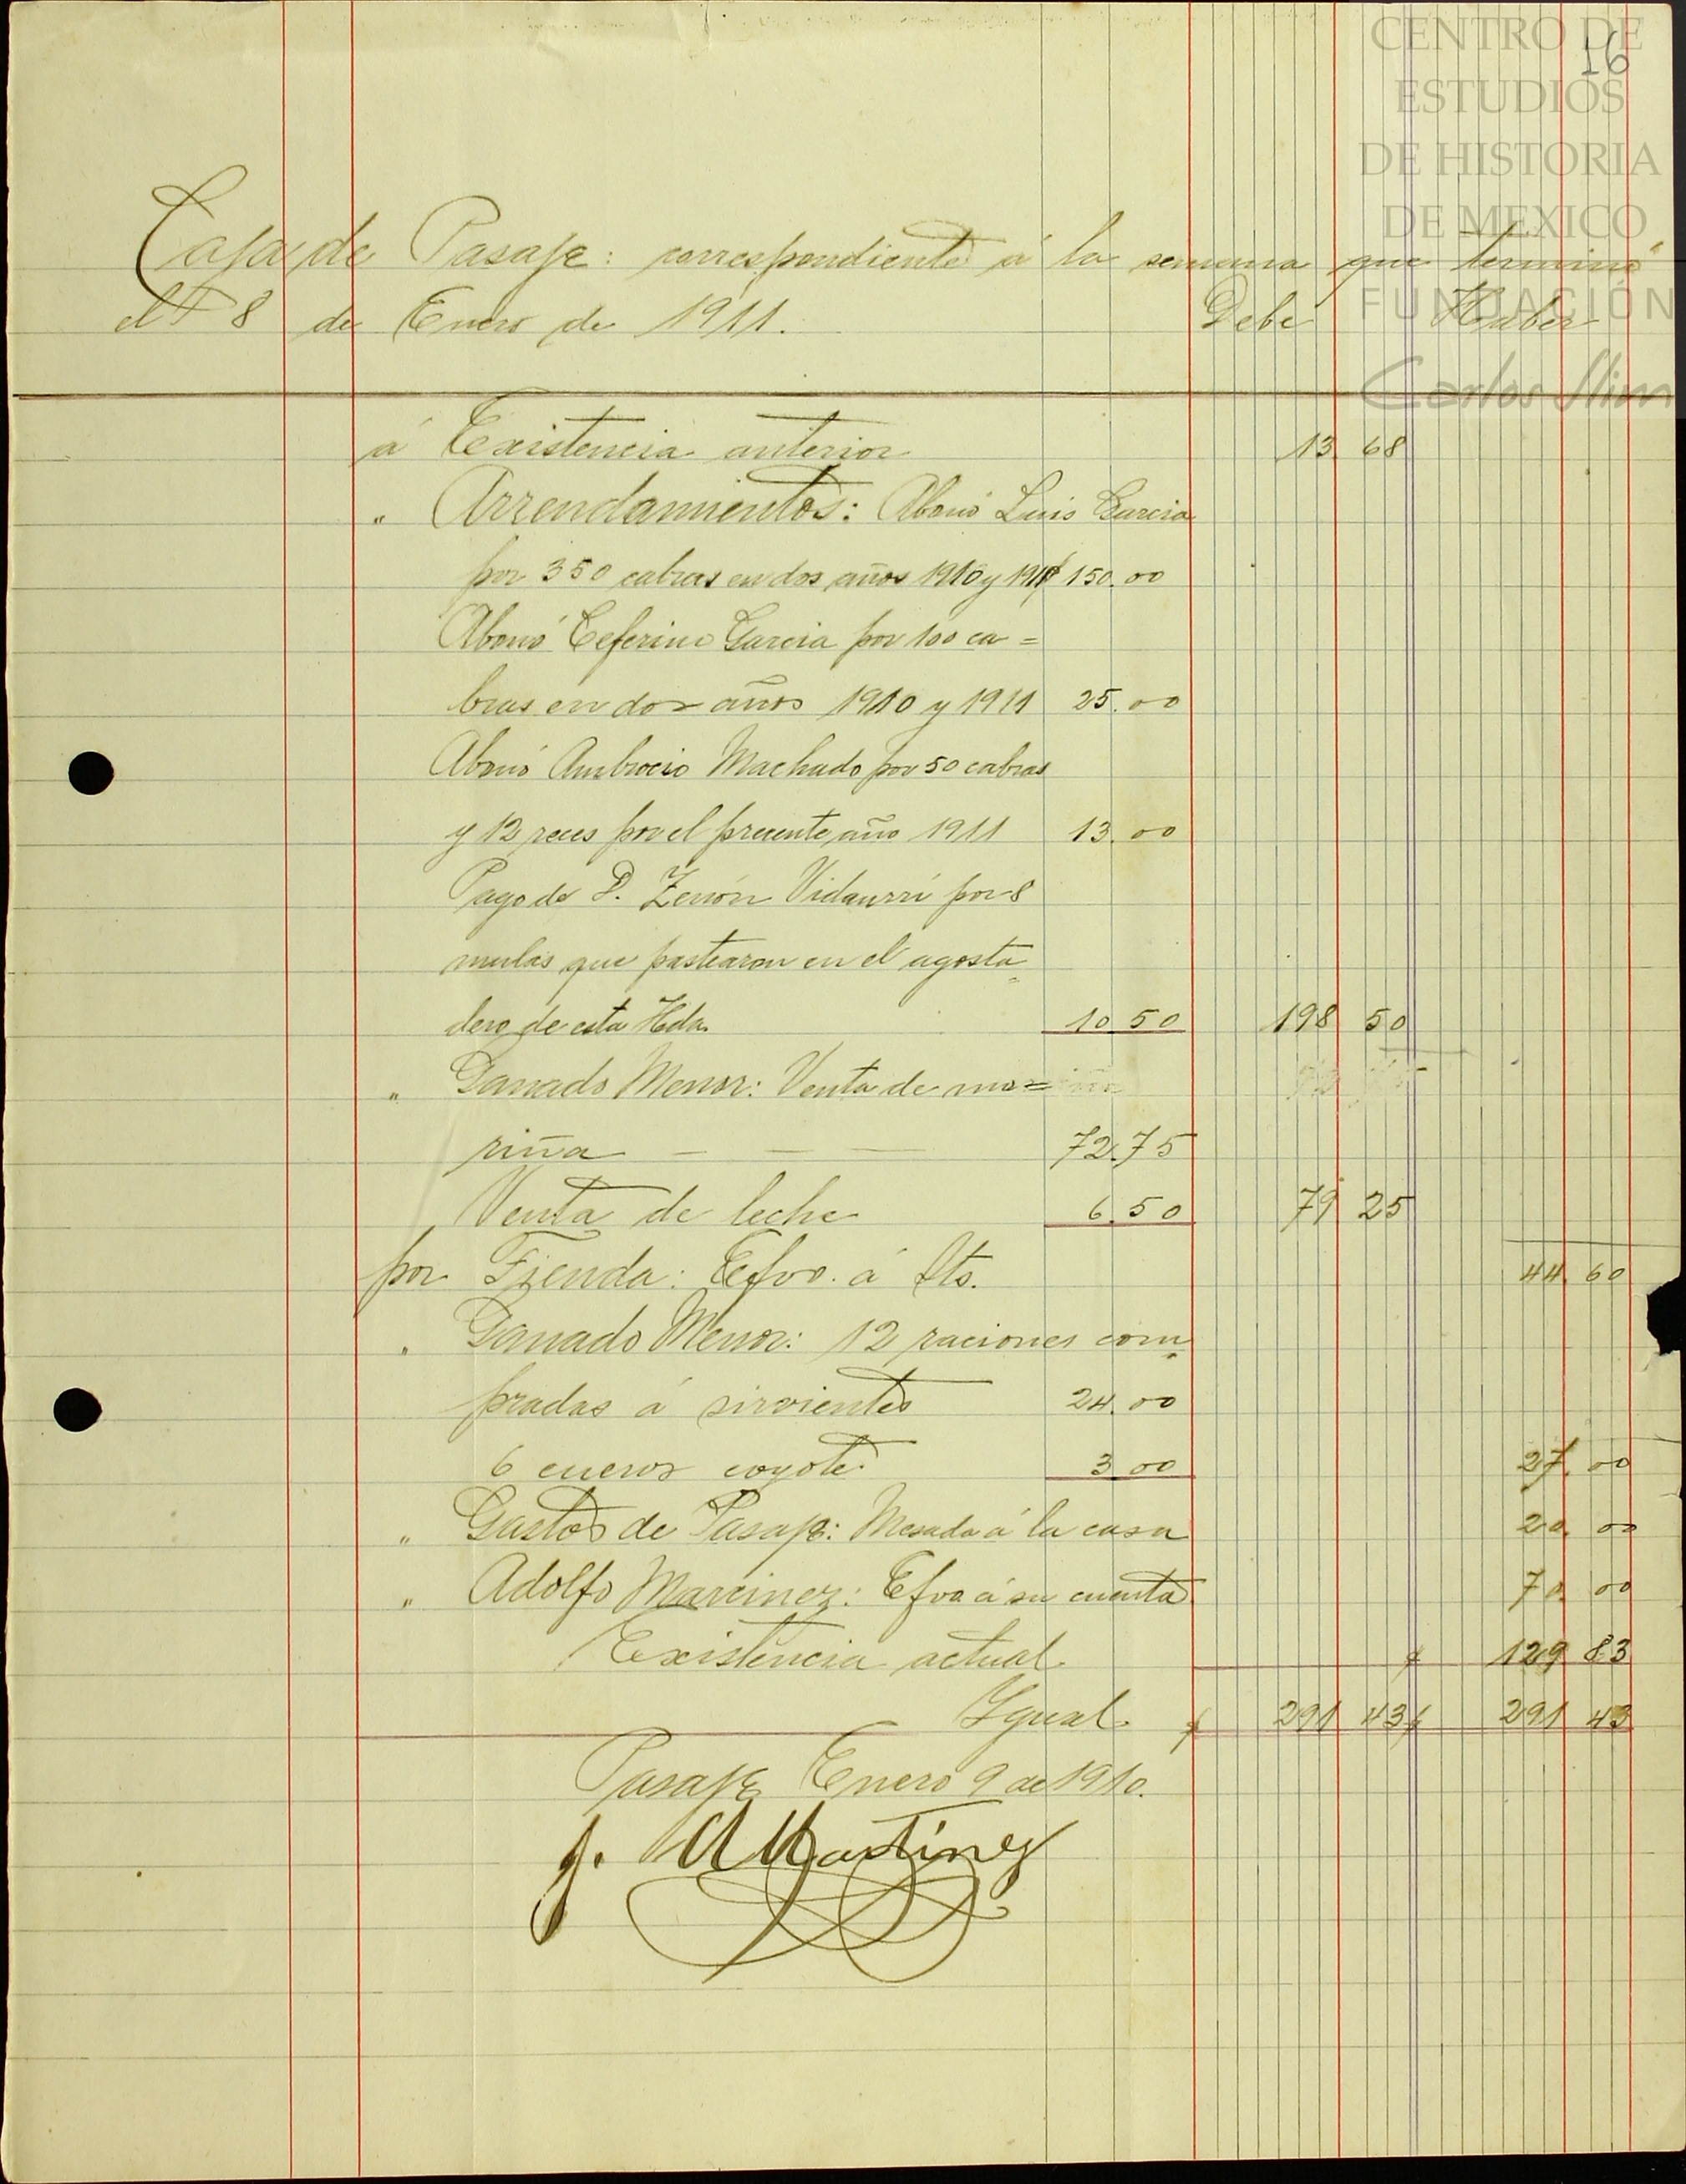 16
CENTRO DE
ESTUDIOS
DE HISTORIA
DE MEXICO
FUNDACIÓN
Carlos Slim
Caja de Pasaje: correspondiente á la semana que terminó
el 8 de Enero de 1911. Debe Haber
á Existencia anterior 13 68
" Arrendamientos: Abonó Luis Garcia
por 350 cabras en dos años 1910 y 1911 150.00
Abonó Ceferino Garcia por 100 ca=
bras en dos años 1910 y 1911 25.00
Abonó Ambrocio Machado por 50 cabras
y 12 reces por el precente año 1911 13.00
Pago de D. Zenón Vidaurri por 8
mulas que pastearon en el agosta=
dero de esta Hda. 10 50 198 50
" Ganado Menor: Venta de mo=
riña — — — 72.75
Venta de leche 6.50 79 25
por Tienda: Efvo. á Sts. 44 60
" Ganado Menor: 12 raciones com=
pradas á sirvientes 24.00
6 cueros coyote 3 00 27.00
" Gastos de Pasaje: Mesada á la casa 20.00
" Adolfo Marcinez: Efvo á su cuenta 70 00
Existencia actual. $ 129 83
Ygual. $ 291 43 $ 291 43
Pasaje Enero 9 de 1910.
J. A Martinez